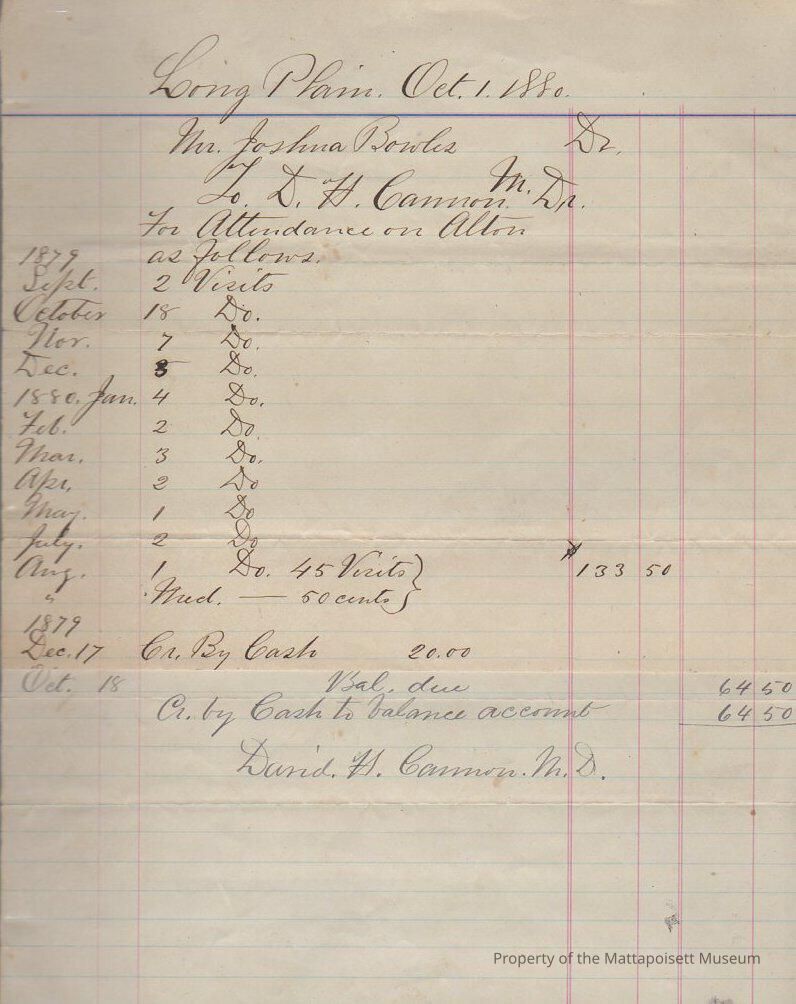 Long Plain. Oct. 1. 1880.
Mr. Joshua Bowles Dr.
To. D. H. Cannon M. Dr.
For Attendance on Alton
1879 as follows.
Sept. 2 Visits
October 18 Do.
Nov. 7 Do.
Dec. 3 Do.
1880. Jan. 4 Do.
Feb. 2 Do.
Mar. 3 Do.
Apr. 2 Do
May. 1 Do
July. 2 Do
Aug. 1 Do. 45 Visits } $133 50
" Med. — 50 cents }
1879
Dec. 17 Cr. By Cash 20.00
Oct. 18 Bal. due 64 50
Cr. by Cash to balance account 64 50
David. H. Cannon. M. D.
Property of the Mattapoisett Museum